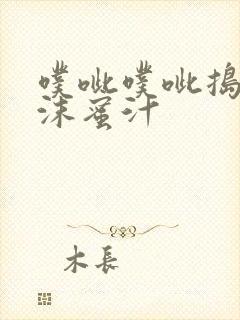 噗呲噗呲搗
沫蜜汁
木長